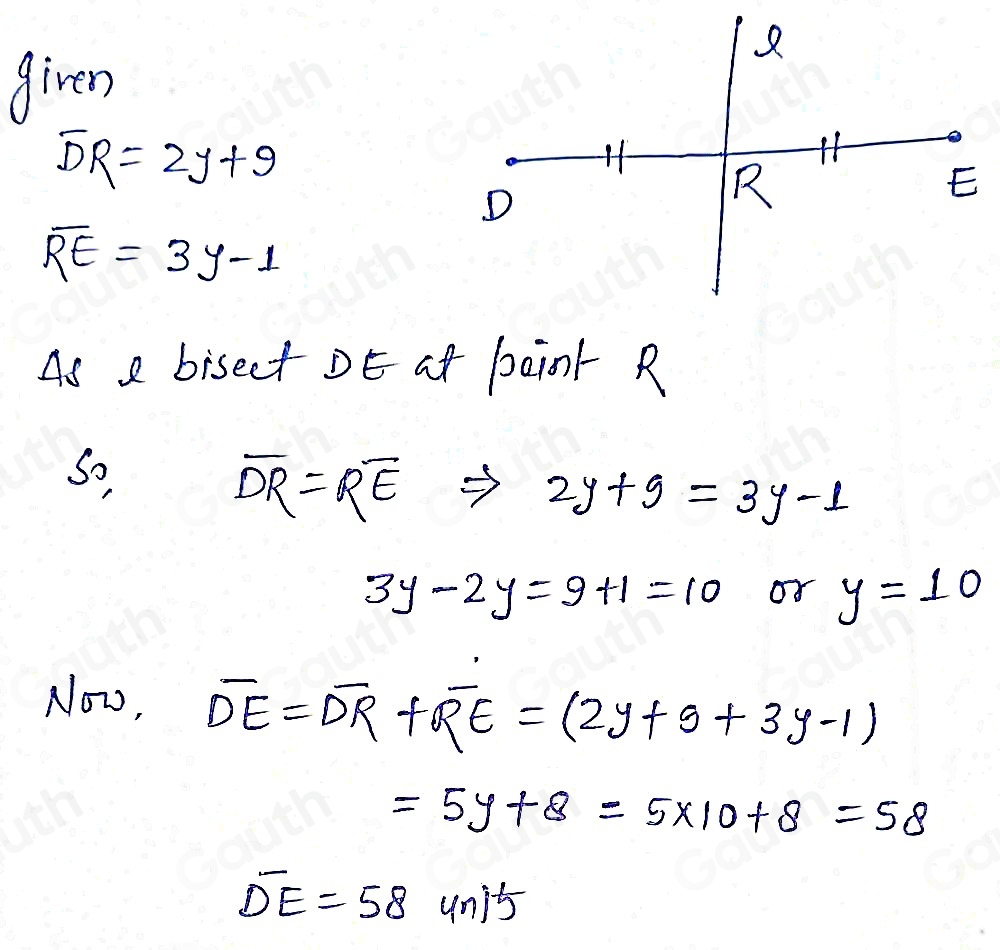 given
l
D̅R = 2y+9
D
R
E
R̅E̅ = 3y-1
As l bisect DE at point R
So, D̅R̅ = RE̅ ⇒ 2y+9 = 3y-1
3y-2y=9+1=10 or y=10
Now, D̅E̅ = D̅R̅ + R̅E̅ = (2y+9+3y-1)
= 5y+8 = 5×10+8 = 58
D̅E̅ = 58 units
Gauth